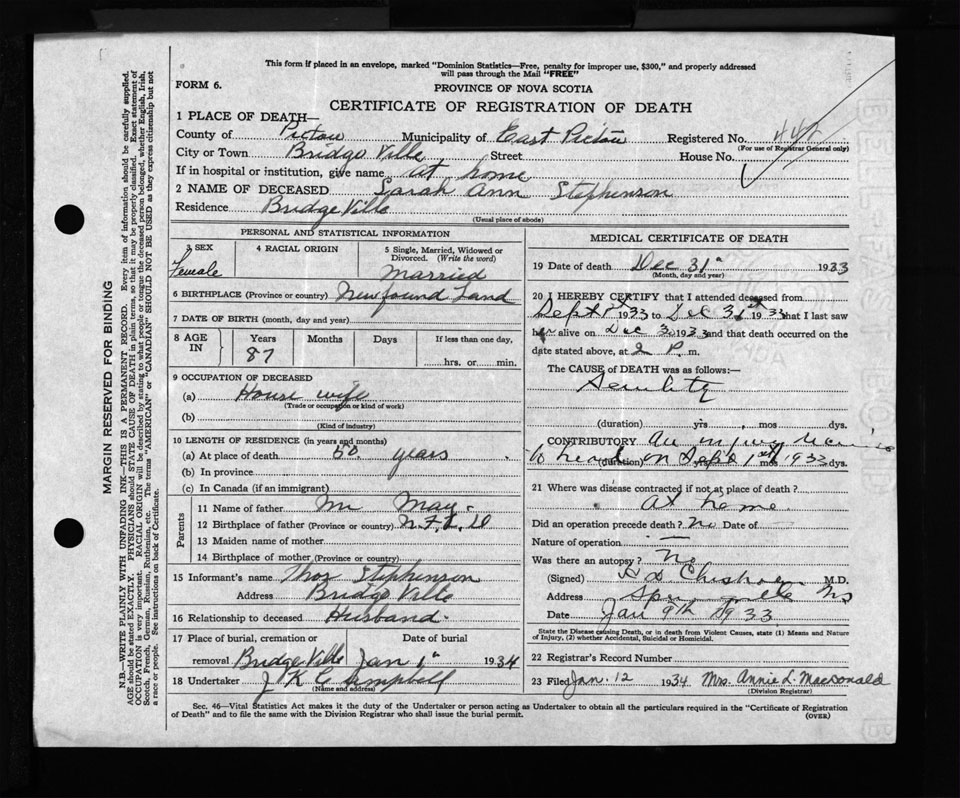 This form if placed in an envelope, marked "Dominion Statistics—Free, penalty for improper use, $300," and properly addressed
will pass through the Mail "FREE"
FORM 6.
PROVINCE OF NOVA SCOTIA
CERTIFICATE OF REGISTRATION OF DEATH
1 PLACE OF DEATH—
County of Pictou Municipality of East Pictou Registered No.
(For use of Registrar General only)
City or Town Bridge Ville Street House No.
If in hospital or institution, give name at home
2 NAME OF DECEASED Sarah Ann Stephenson
Residence Bridge Ville
(Usual place of abode)
PERSONAL AND STATISTICAL INFORMATION
3 SEX 4 RACIAL ORIGIN 5 Single, Married, Widowed or
Divorced. (Write the word)
Female Married
6 BIRTHPLACE (Province or country) Newfound Land
7 DATE OF BIRTH (month, day and year)
8 AGE IN Years Months Days If less than one day,
87 hrs. or min.
9 OCCUPATION OF DECEASED
(a) House wife
(Trade or occupation or kind of work)
(b)
(Kind of industry)
10 LENGTH OF RESIDENCE (in years and months)
(a) At place of death 50 years
(b) In province
(c) In Canada (if an immigrant)
Parents
11 Name of father Mr May.
12 Birthplace of father (Province or country) N.F.L.D
13 Maiden name of mother
14 Birthplace of mother (Province or country)
15 Informant's name Thos Stephenson
Address Bridge Ville
16 Relationship to deceased Husband.
17 Place of burial, cremation or Date of burial
removal Bridge Ville Jan 1st 1934
18 Undertaker J K Campbell
(Name and address)
MEDICAL CERTIFICATE OF DEATH
19 Date of death Dec 31st 1933
(Month, day and year)
20 I HEREBY CERTIFY that I attended deceased from
Sept 1st 1933 to Dec 31st 1933 that I last saw
her alive on Dec 3 1933 and that death occurred on the
date stated above, at 2 P. m.
The CAUSE of DEATH was as follows:—
Senility
(duration) yrs. mos dys.
CONTRIBUTORY An injury
to head on Sept 1st 1933
(duration) mos dys.
21 Where was disease contracted if not at place of death?
At home
Did an operation precede death? No Date of
Nature of operation —
Was there an autopsy? No
(Signed) Chisholm M.D.
Address NS
Date Jan 9th 1933
State the Disease causing Death, or in death from Violent Causes, state (1) Means and Nature
of Injury, (2) whether Accidental, Suicidal or Homicidal.
22 Registrar's Record Number
23 Filed Jan. 12 1934 Mrs. Annie L. MacDonald
(Division Registrar)
Sec. 46—Vital Statistics Act makes it the duty of the Undertaker or person acting as Undertaker to obtain all the particulars required in the "Certificate of Registration
of Death" and to file the same with the Division Registrar who shall issue the burial permit.
(OVER)
MARGIN RESERVED FOR BINDING
N.B.—WRITE PLAINLY WITH UNFADING INK—THIS IS A PERMANENT RECORD. Every item of information should be carefully supplied.
AGE should be stated EXACTLY. PHYSICIANS should STATE CAUSE OF DEATH in plain terms, so that it may be properly classified. Exact statement of
OCCUPATION is very important. RACIAL ORIGIN will be described by stating to what people or tongue the deceased person belonged, whether English, Irish,
Scotch, French, German, Russian, Ruthenian, etc. The terms "AMERICAN" or "CANADIAN" SHOULD NOT BE USED as they express citizenship but not
a race or people. See instructions on back of Certificate.